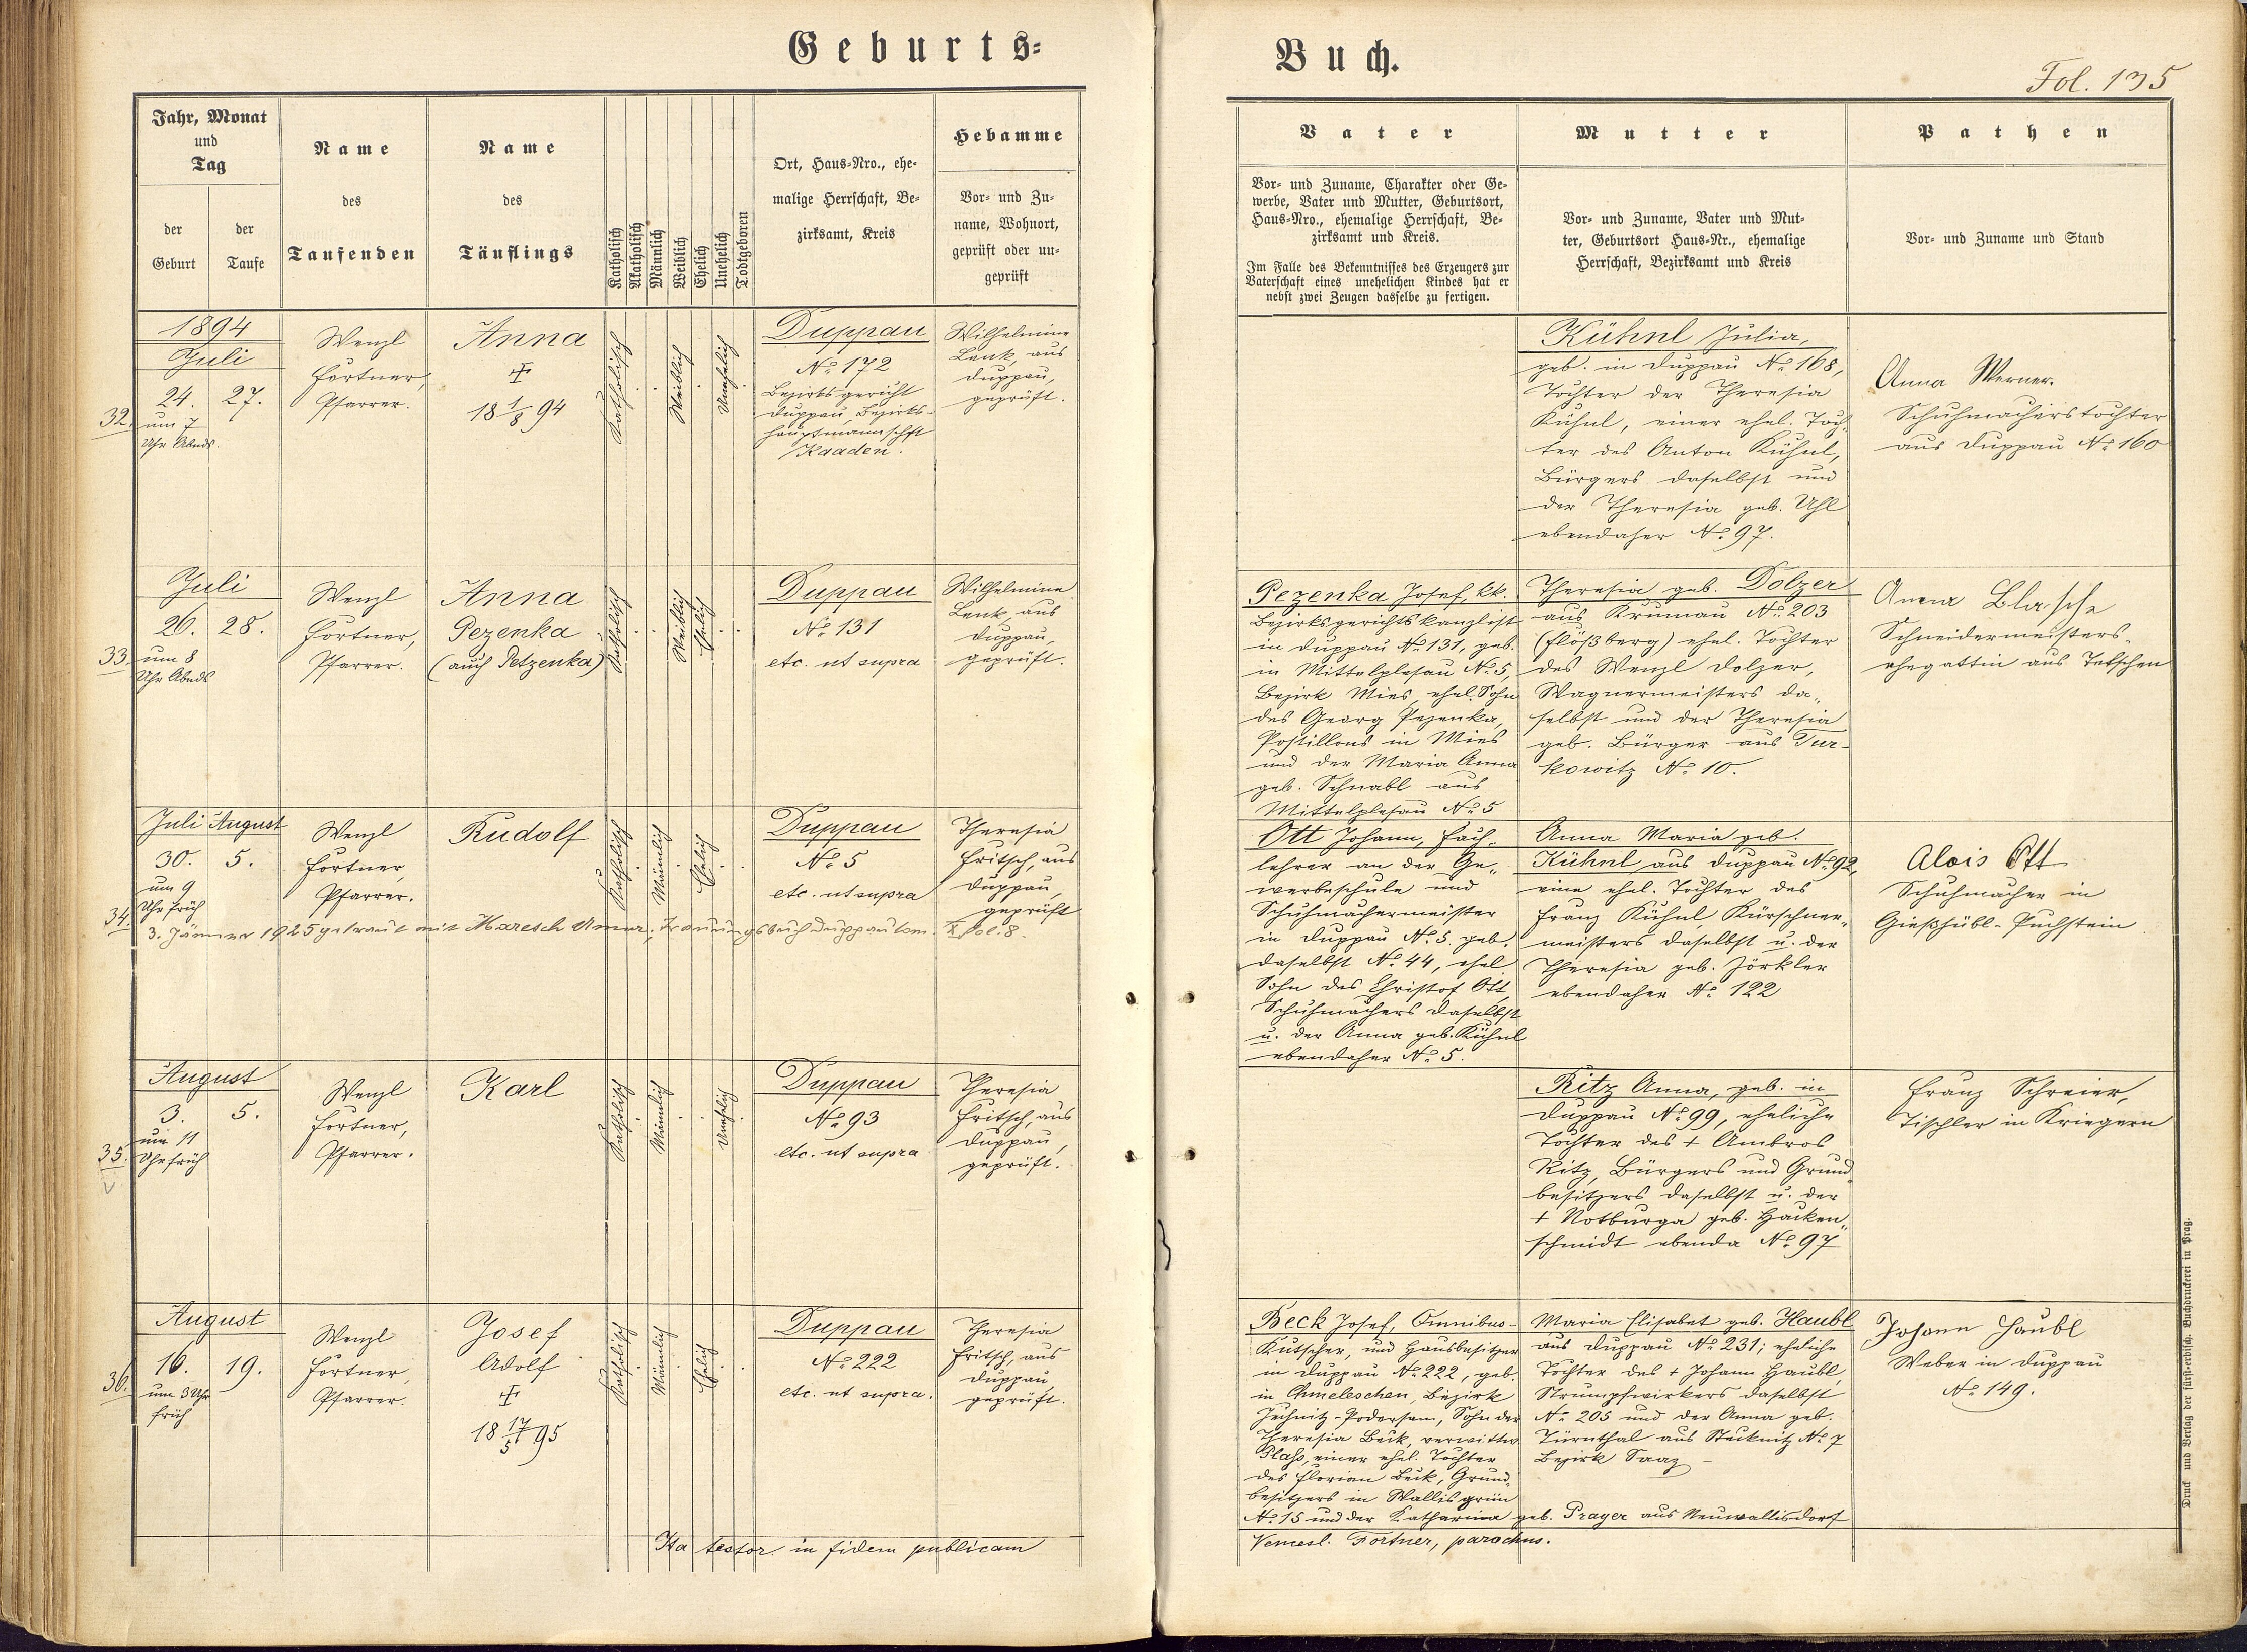 Geburts=
Buch.
Fol. 135
Jahr, Monat
und
Tag
der
Geburt
der
Taufe
Name
des
Taufenden
Name
des
Täuflings
Katholisch
Akatholisch
Männlich
Weiblich
Ehelich
Unehelich
Todtgeboren
Ort, Haus=Nro., ehe=
malige Herrschaft, Be=
zirksamt, Kreis
Hebamme
Vor= und Zu=
name, Wohnort,
geprüft oder un=
geprüft
Vater
Vor= und Zuname, Charakter oder Ge=
werbe, Vater und Mutter, Geburtsort,
Haus=Nro., ehemalige Herrschaft, Be=
zirksamt und Kreis.
Im Falle des Bekenntnisses des Erzeugers zur
Vaterschaft eines unehelichen Kindes hat er
nebst zwei Zeugen dasselbe zu fertigen.
Mutter
Vor= und Zuname, Vater und Mut=
ter, Geburtsort Haus=Nr., ehemalige
Herrschaft, Bezirksamt und Kreis
Pathen
Vor= und Zuname und Stand
32.
1894
Juli
24. 27.
um 7
Uhr Abnds.
Wenzl
Förtner,
Pfarrer.
Anna
✠
18 1/8 94
Katholisch
Weiblich
Unehelich
Duppau
No. 172
Bezirksgericht
Duppau, Bezirks-
hauptmannschft
Kaaden.
Wilhelmine
Lenk, aus
Duppau,
geprüft.
Kühnl Julia,
geb. in Duppau No. 168,
Tochter der Theresia
Kühnl, einer ehel. Toch-
ter des Anton Kühnl,
Bürgers daselbst und
der Theresia geb. Uhl
ebendaher No. 97.
Anna Werner.
Schuhmacherstochter
aus Duppau No. 160
33.
Juli
26. 28.
um 8
Uhr Abnds
Wenzl
Förtner,
Pfarrer.
Anna
Pezenka
(auch Petzenka)
Katholisch
Weiblich
Ehelich
Duppau
No. 131
etc. ut supra
Wilhelmine
Lenk, aus
Duppau,
geprüft.
Pezenka Josef, kk.
Bezirksgerichtskanzlist
in Duppau No. 131, geb.
in Mittelplesau No. 5,
Bezirk Mies, ehel. Sohn
des Georg Pezenka,
Postillons in Mies
und der Maria Anna
geb. Schnabl aus
Mittelplesau No. 5
Theresia geb. Dolzer
aus Krumau No. 203
(Flößberg) ehel. Tochter
des Wenzl Dolzer,
Wagnermeisters da-
selbst und der Theresia
geb. Bürger aus Tur-
kowitz No. 10.
Anna Blasche
Schneidermeisters-
ehegattin aus Tetschen
34.
Juli August
30. 5.
um 9
Uhr früh
Wenzl
Förtner,
Pfarrer.
Rudolf
Katholisch
Männlich
Ehelich
Duppau
No. 5
etc. ut supra
Theresia
Fritsch, aus
Duppau,
geprüft
3. Jänner 1925 getraut mit Maresch Anna; Trauungsbuch Duppau tom. X fol. 8.
Ott Johann, Fach-
lehrer an der Ge-
werbeschule und
Schuhmachermeister
in Duppau No. 5. geb.
daselbst No. 44, ehel.
Sohn des Christof Ott,
Schuhmachers daselbst
u. der Anna geb. Kühnl
ebendaher No. 5.
Anna Maria geb.
Kühnl aus Duppau No. 92,
eine ehel. Tochter des
Franz Kühnl, Kürschner-
meisters daselbst u. der
Theresia geb. Jörkler
ebendaher No. 122
Alois Ott
Schuhmacher in
Gießhübl-Puchstein
35.
August
3. 5.
um 11
Uhr früh
Wenzl
Förtner,
Pfarrer.
Karl
Katholisch
Männlich
Unehelich
Duppau
No. 93
etc. ut supra
Theresia
Fritsch, aus
Duppau,
geprüft.
Ritz Anna, geb. in
Duppau No. 99, eheliche
Tochter des + Ambros
Ritz, Bürgers und Grund-
besitzers daselbst u. der
+ Notburga geb. Hacken-
schmidt ebenda No. 97
Franz Schreier,
Tischler in Kriegern
36.
August
16. 19.
um 3 Uhr
früh
Wenzl
Förtner,
Pfarrer.
Josef
Adolf
✠
18 17/5 95
Katholisch
Männlich
Ehelich
Duppau
No. 222
etc. ut supra.
Theresia
Fritsch, aus
Duppau
geprüft.
Beck Josef, Omnibus-
Kutscher, und Hausbesitzer
in Duppau No. 222, geb.
in Chmeleschen, Bezirk
Jechnitz-Podersam, Sohn der
Theresia Beck, verwittw.
Plass, einer ehel. Tochter
des Florian Beck, Grund-
besitzers in Wallisgrün
No. 15 und der Katharina geb. Prayer aus Neuwallisdorf
Maria Elisabet geb. Haubl
aus Duppau No. 231; eheliche
Tochter des + Johann Haubl,
Strumpfwirkers daselbst
No. 205 und der Anna geb.
Türnthal aus Stecknitz No. 7
Bezirk Saaz
Johann Haubl
Weber in Duppau
No. 149.
Ita testor in fidem publicam
Vencesl. Förtner, parochus.
Druck und Verlag der fürst=erzbisch. Buchdruckerei in Prag.